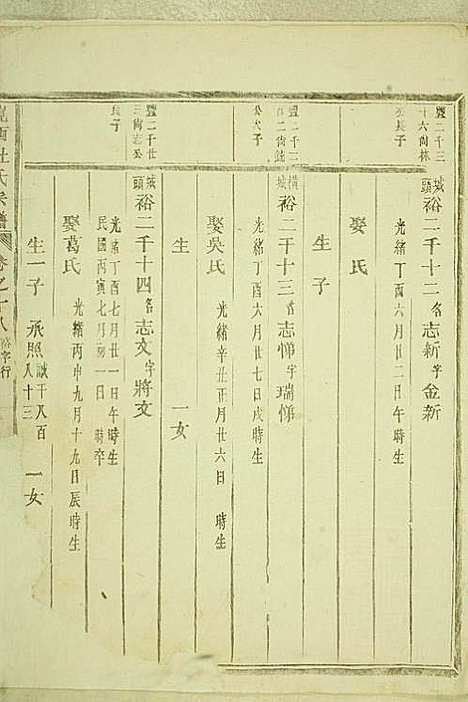 豐二千三
十六尚林
公長子
城頭 裕二千十二 名志新字金新
光緒丁酉六月廿二日午時生
娶 氏
生 子
豐二千二
百二尚
公六子
橫城 裕二千十三 名志悌字瑞悌
光緒丁酉六月廿七日戌時生
娶吳氏 光緒辛丑正月廿六日 時生
生 一女
豐二千廿
三尚志公
長子
城頭 裕二千十四 名志文字將文
光緒丁酉七月廿一日午時生
民國丙寅七月初一日 時卒
娶葛氏 光緒丙申九月十九日辰時生
生一子 承照 誠千八百八十三 一女
杜氏宗譜 卷之十八 裕字行